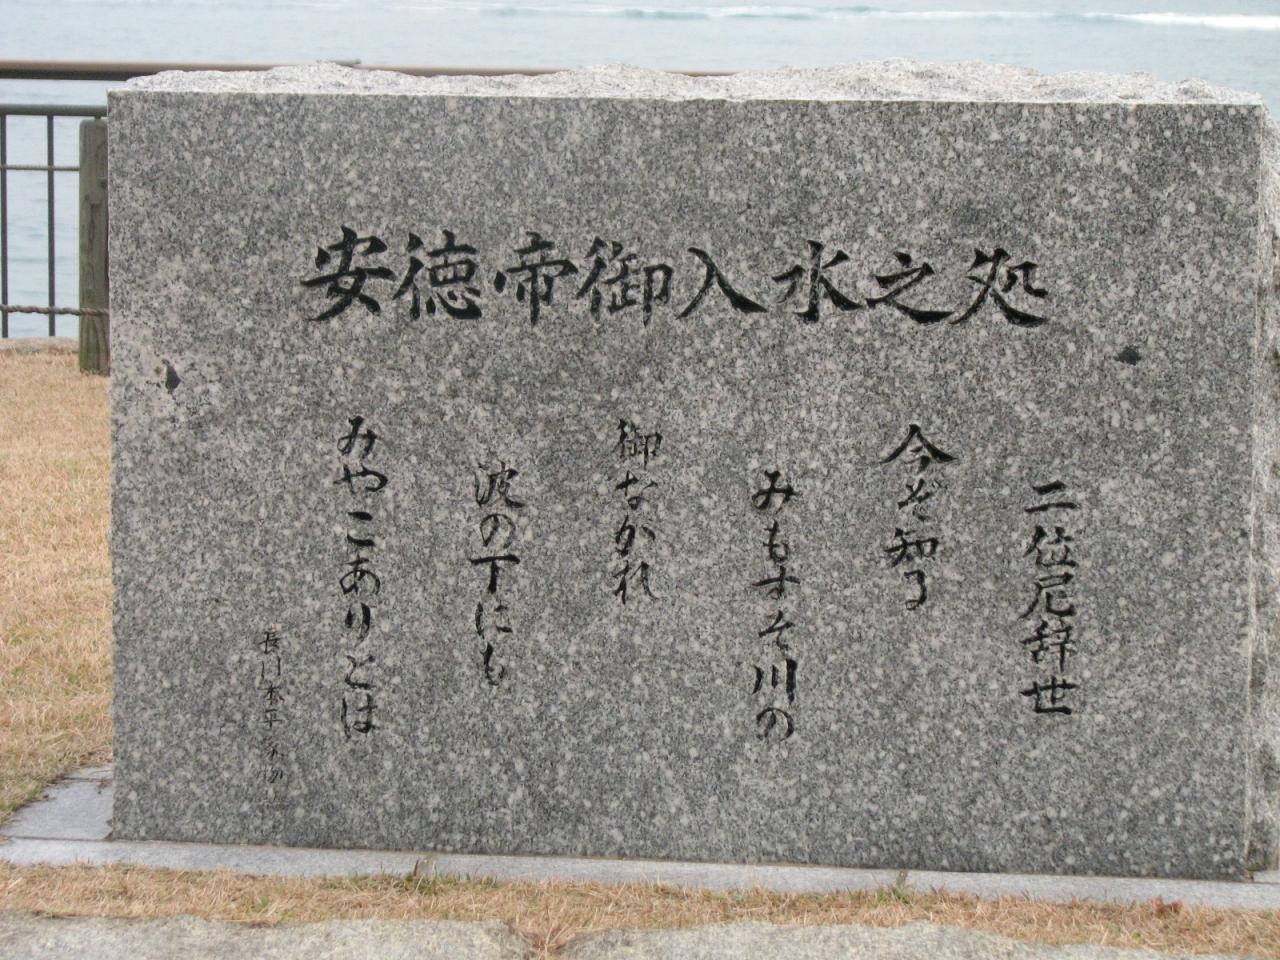 安徳帝御入水之処
二位尼辞世
今ぞ知る
みもすそ川の
御ながれ
波の下にも
みやこありとは
長門本平家物語